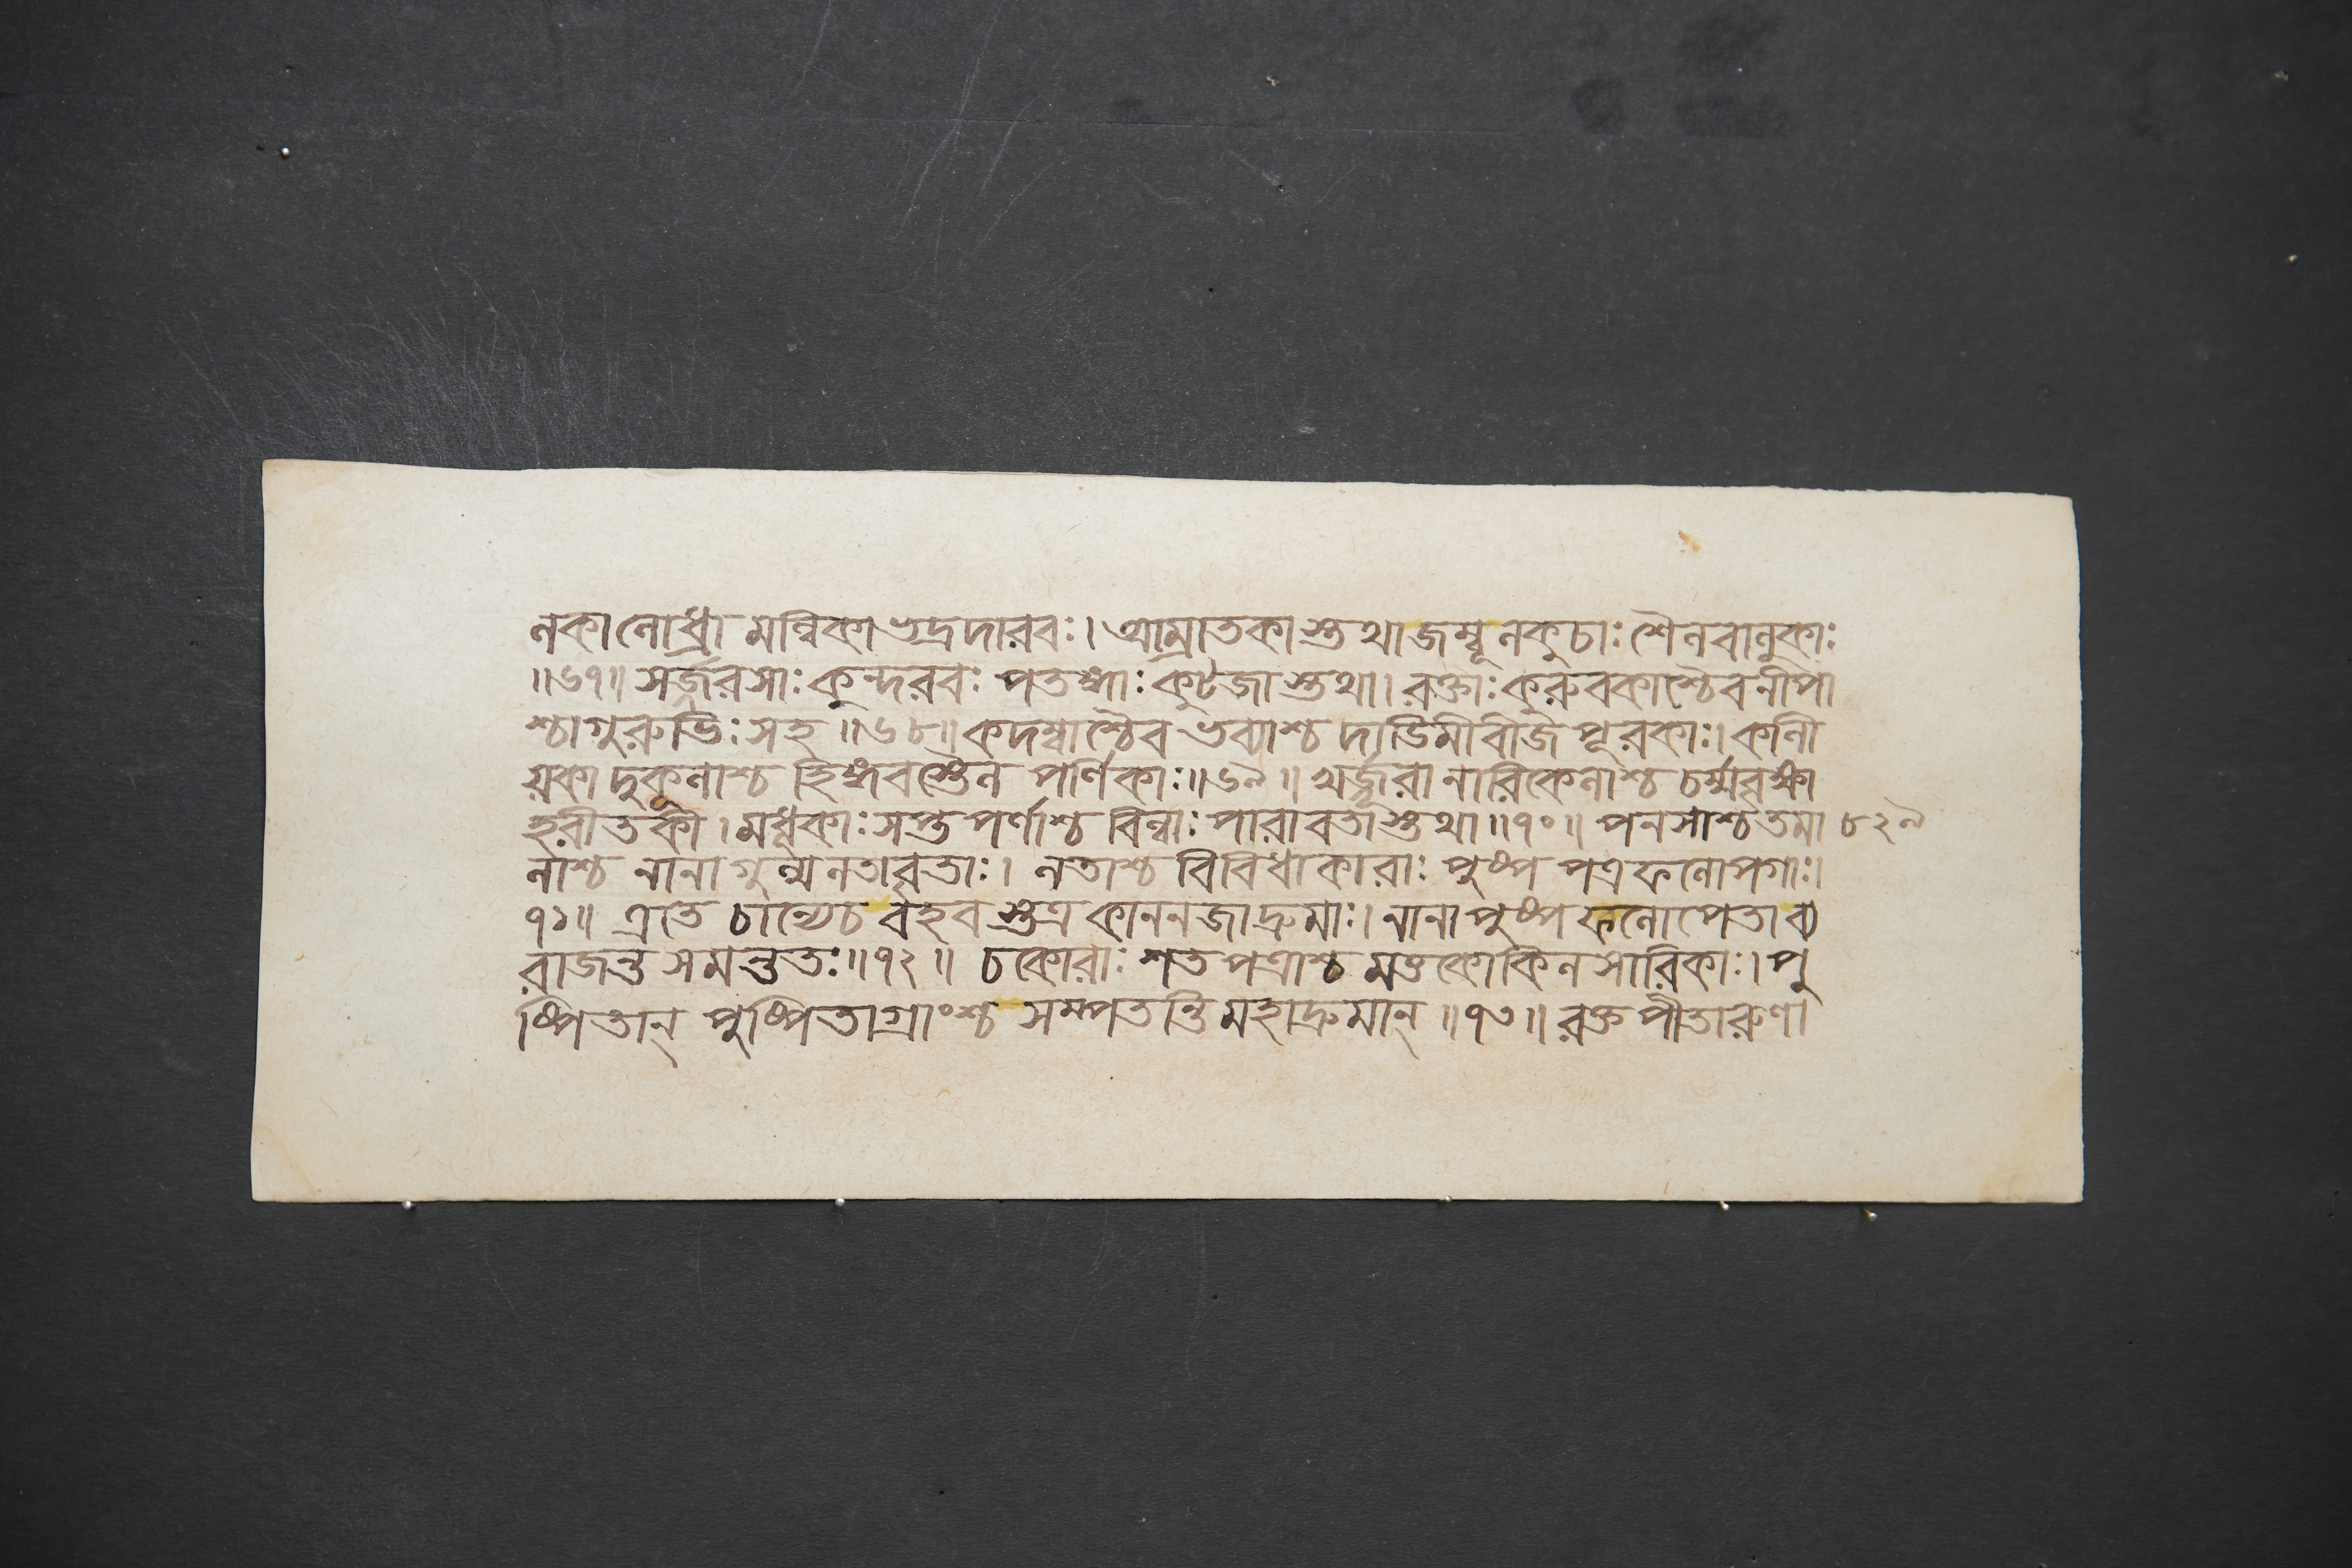 লকা লোধ্রা মল্লিকা ভদ্রদারবঃ। আম্রাতকা স্তথা জম্বূলকুচাঃ শৈলবালুকাঃ
॥৬৭॥ সর্জ্জরসাঃ কুন্দরবঃ পতঙ্গাঃ কুটজা স্তথা। রক্তাঃ কুরুবকাশ্চৈব নীপা
শ্চাগুরুভিঃ সহ ॥৬৮॥ কদম্বাশ্চৈব ভব্যাশ্চ দাডিমীবীজ পূরকাঃ। কালী
য়কা দুকূলাশ্চ হিঙ্গবস্তৈল পর্ণিকাঃ॥৬৯॥ খর্জ্জূরা নারিকেলাশ্চ চর্ম্মবৃক্ষা
হরীতকী। মধূকাঃ সপ্ত পর্ণাশ্চ বিল্বাঃ পারাবতাস্তথা ॥৭০॥ পনসাশ্চ তমা ৮২৯
লাশ্চ নানা গুল্মলতাবৃতাঃ। লতাশ্চ বিবিধাকারাঃ পুষ্প পত্র ফলোপগাঃ।
৭১॥ এতে চান্যেচ বহব স্তত্র কাননজা দ্রুমাঃ। নানা পুষ্প ফলোপেতা ব্য
রাজন্ত সমন্ততঃ॥৭২॥ চকোরাঃ শতপত্রাশ্চ মত্তকোকিল সারিকাঃ। পু
ষ্পিতান্ পুষ্পিতাগ্রাংশ্চ সম্পতন্তি মহাদ্রুমান্ ॥৭৩॥ রক্ত পীতারুণা